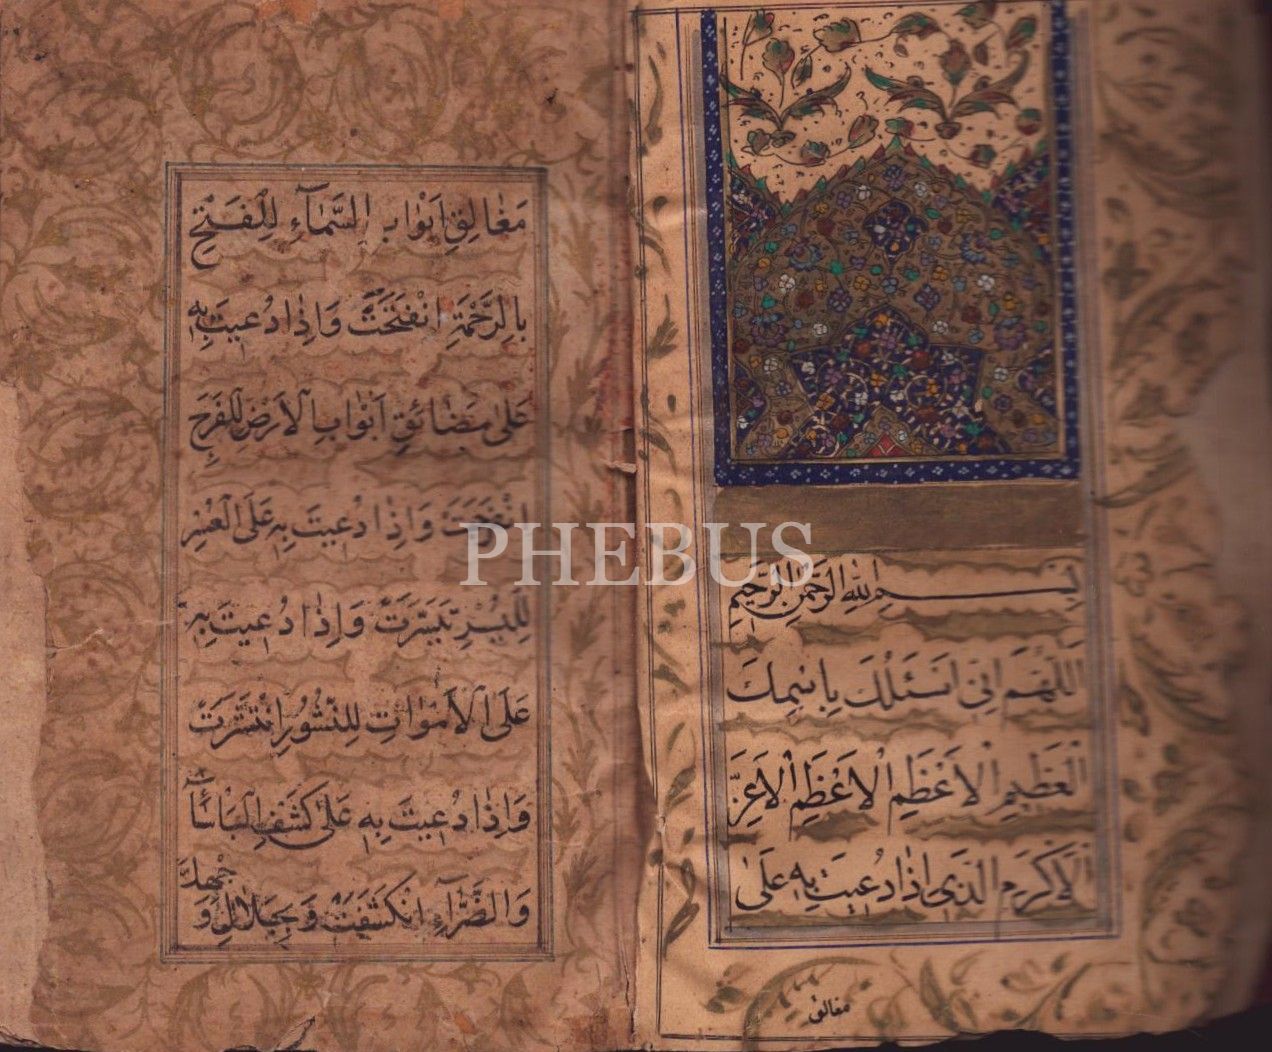 بِسْمِ اللهِ الرَّحْمٰنِ الرَّحِيمِ
اَللّٰهُمَّ اِنّى اَسْئَلُكَ بِاسْمِكَ
الْعَظِيمِ الْاَعْظَمِ الْاَعْظَمِ الْاَعَزِّ
الْاَكْرَمِ الَّذى اِذٰا دُعيتَ بِهِ عَلىٰ
مغالق
مَغٰالِقِ اَبْوٰابِ السَّمٰآءِ لِلْفَتْحِ
بِالرَّحْمَةِ انْفَتَحَتْ وَاِذٰا دُعيتَ بِهِ
عَلىٰ مَضٰائِقِ اَبْوٰابِ الْاَرْضِ لِلْفَرَجِ
انْفَرَجَتْ وَاِذٰا دُعيتَ بِهِ عَلَى الْعُسْرِ
لِلْيُسْرِ تَيَسَّرَتْ وَاِذٰا دُعيتَ بِهِ
عَلَى الْاَمْوٰاتِ لِلنُّشُورِ انْتَشَرَتْ
وَاِذٰا دُعيتَ بِهِ عَلىٰ كَشْفِ الْبَأْسٰآءِ
وَالضَّرّٰآءِ انْكَشَفَتْ وَبِجَلٰالِ وَجْهِكَ
PHEBUS